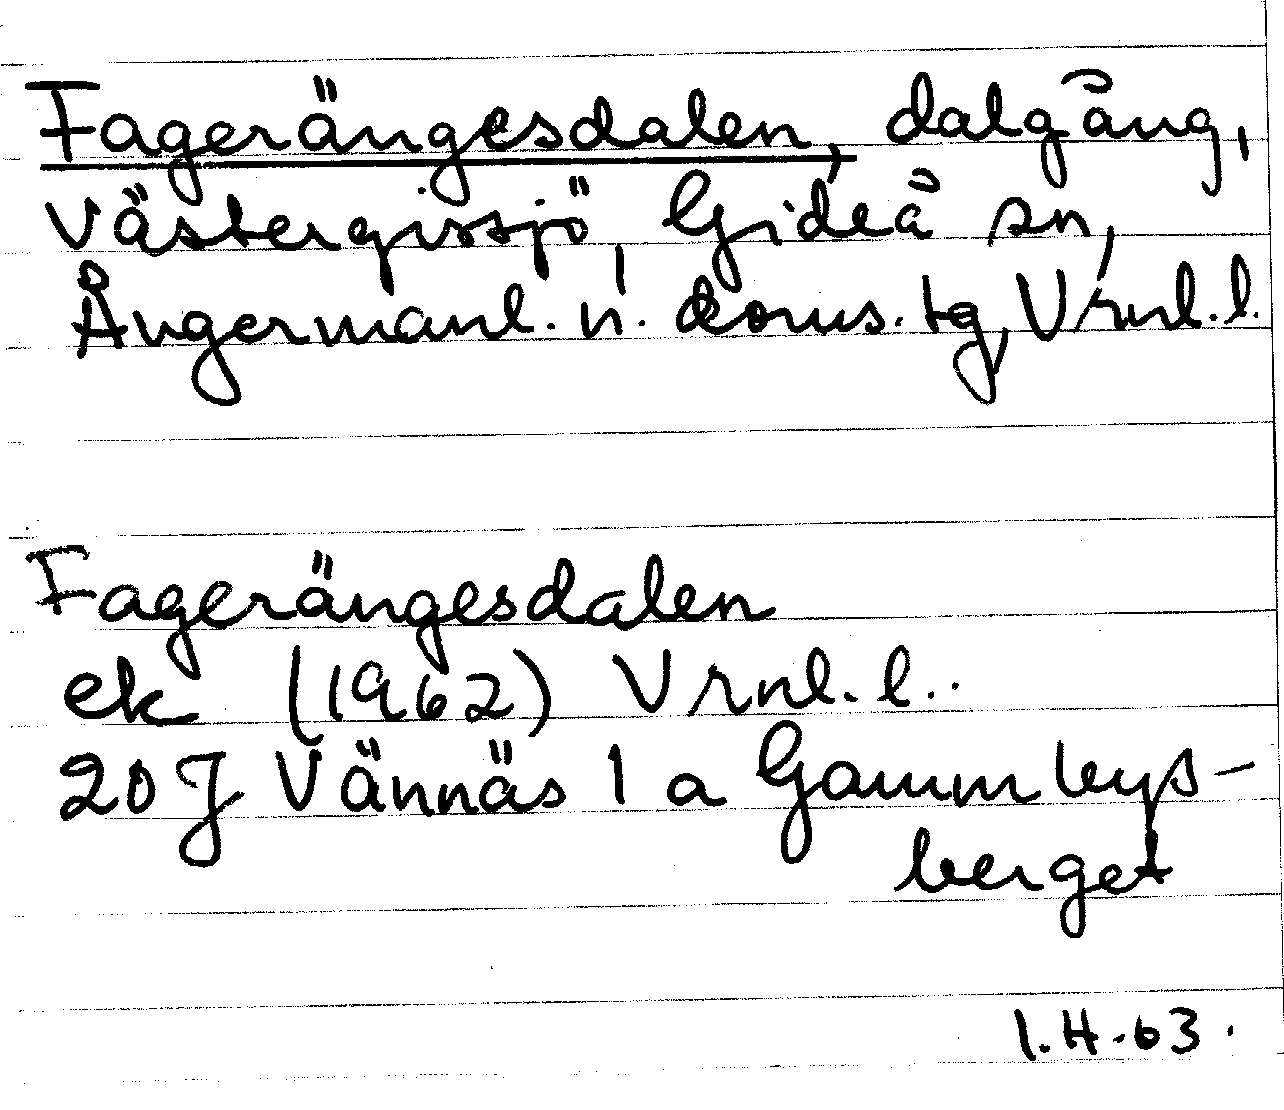 Fagerängesdalen, dalgång,
Västergissjö, Gideå sn,
Ångermanl. n. doms. tg, Vrnl. l.
Fagerängesdalen
ek (1962) Vrnl. l..
20 J Vännäs 1 a Gammbys-
berget
I.H.63.